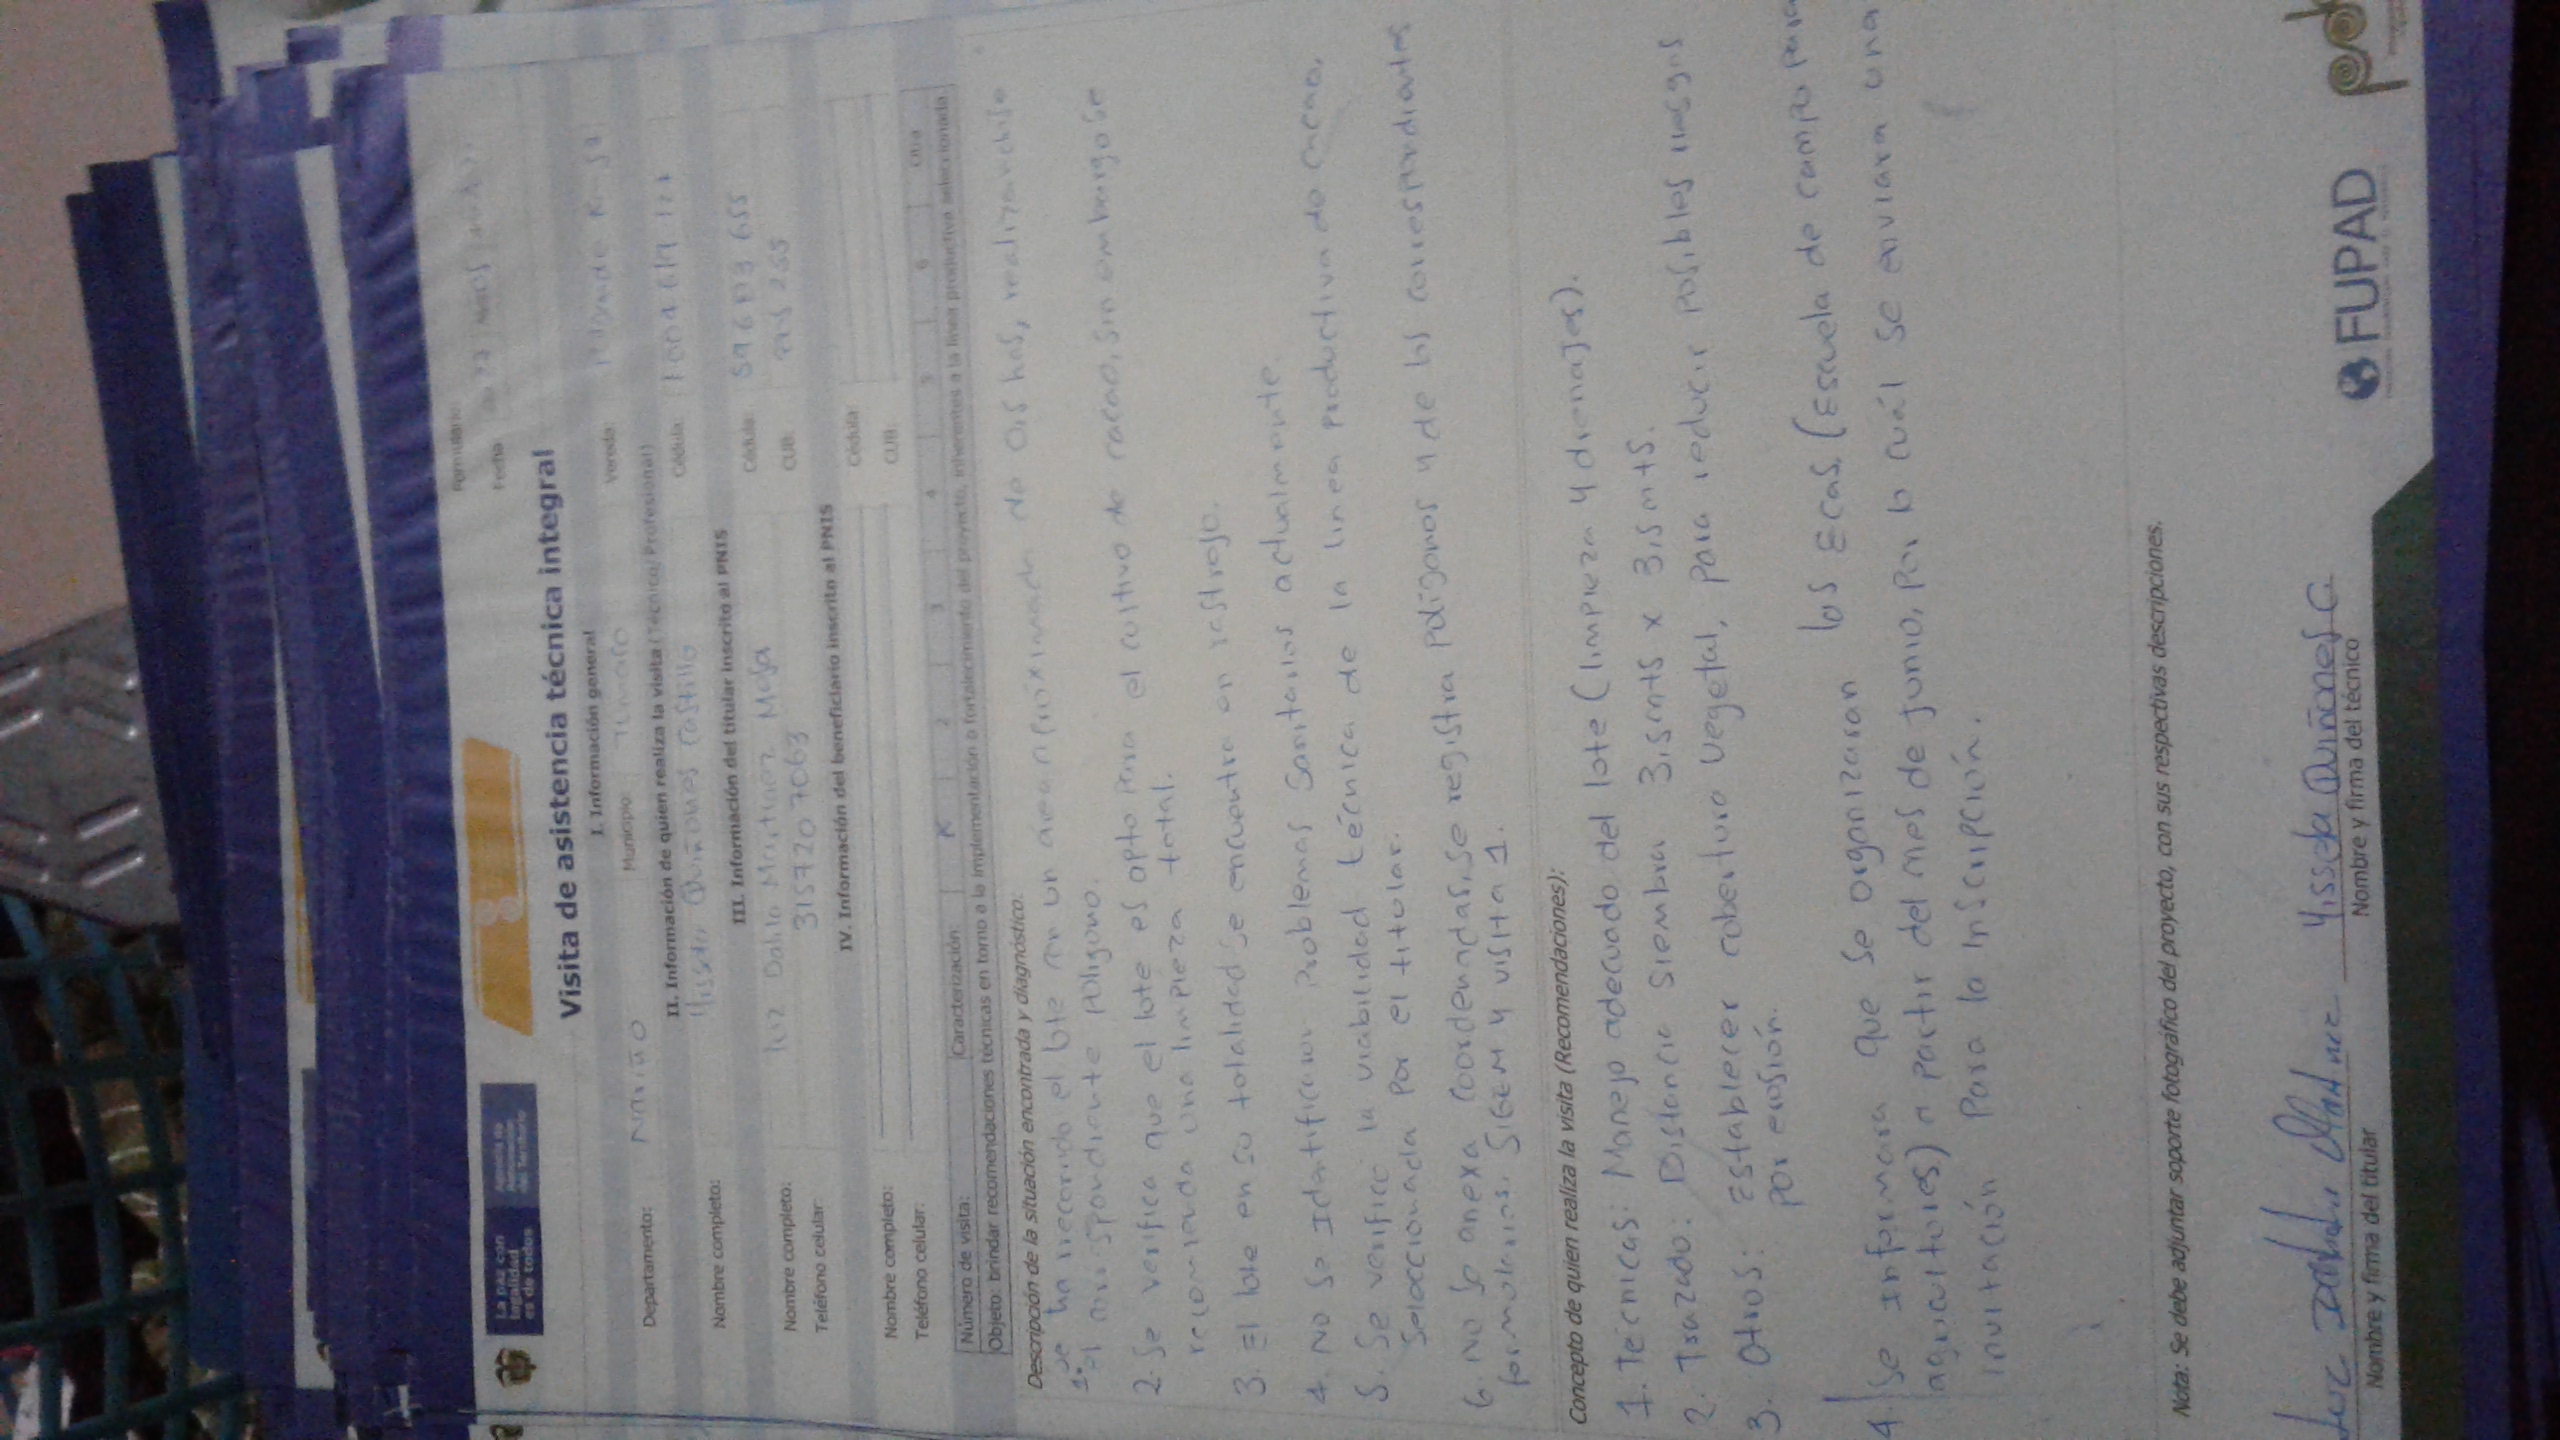 La paz con
legalidad
es de todos
Agencia de
Renovación
del Territorio
Formulario:
Fecha
Visita de asistencia técnica integral
I. Información general
Departamento: Nariño Municipio: Tumaco Vereda:
II. Información de quien realiza la visita (Técnico/Profesional)
Nombre completo: Yisseta Quiñones Castillo Cédula:
III. Información del titular inscrito al PNIS
Nombre completo: luz Dahla Martinez Mesa Cédula:
Teléfono celular: 3157207063 CUB:
IV. Información del beneficiario inscrito al PNIS
Nombre completo: Cédula:
Teléfono celular: CUB:
Número de visita: Caracterización: X 2 3 4 5 6 Otra
Objeto: brindar recomendaciones técnicas en torno a la implementación o fortalecimiento del proyecto, inherentes a la línea productiva seleccionada.
Descripción de la situación encontrada y diagnóstico:
1. Se ha recorrido el lote en un área aproximada de 0,5 has, realizandose
el correspondiente poligono.
2. Se verifica que el lote es apto para el cultivo de cacao, sin embargo se
recomienda una limpieza total.
3. El lote en su totalidad se encuentra en rastrojo.
4. No se Identificaron Problemas Sanitarios actualmente.
5. Se verificó la viabilidad técnica de la linea productiva de cacao,
seleccionada por el titular.
6. No se anexa coordenadas, se registra poligonos y de los correspondientes
formularios. SIGEM y visita 1.
Concepto de quien realiza la visita (Recomendaciones):
1. Técnicas: Manejo adecuado del lote (limpieza y drenajes).
2. Trazado: Distancia siembra 3,5mts x 3,5mts.
3. Otros: establecer cobertura vegetal, para reducir posibles riesgos
por erosión.
4. Se informara que se organizaran las ECAS (Escuela de campo para
agricultores) a partir del mes de junio, por lo cuál se enviara una
invitación para la inscripción.
Nota: Se debe adjuntar soporte fotográfico del proyecto, con sus respectivas descripciones.
Yisseta Quiñones C.
Nombre y firma del titular Nombre y firma del técnico
FUPAD